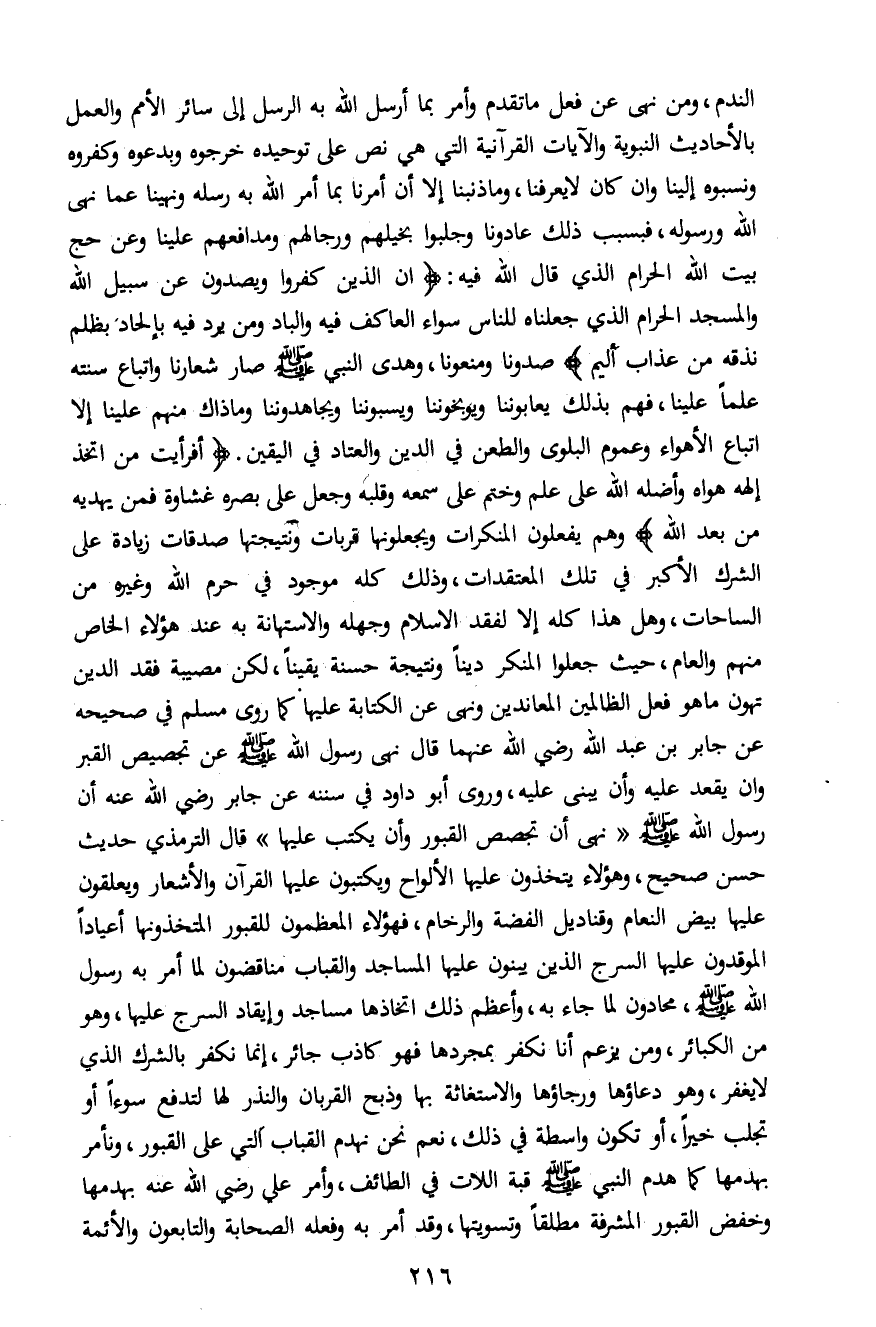 الندم، ومن نهى عن فعل ماتقدم وأمر بما أرسل الله به الرسل إلى سائر الأمم والعمل
بالأحاديث النبوية والآيات القرآنية التي هي نص على توحيده خرجوه وبدعوه وكفروه
ونسبوه إلينا وان كان لايعرفنا، وماذنبنا إلا أن أمرنا بما أمر الله به رسله ونهينا عما نهى
الله ورسوله، فبسبب ذلك عادونا وجلبوا بخيلهم ورجالهم ومدافعهم علينا وعن حج
بيت الله الحرام الذي قال الله فيه: ﴿ ان الذين كفروا ويصدون عن سبيل الله
والمسجد الحرام الذي جعلناه للناس سواء العاكف فيه والباد ومن يرد فيه بإلحاد بظلم
نذقه من عذاب أليم ﴾ صدونا ومنعونا، وهدى النبي ﷺ صار شعارنا واتباع سنته
علماً علينا، فهم بذلك يعابوننا ويوبخوننا ويسبوننا ويجاهدوننا وماذاك منهم علينا إلا
اتباع الأهواء وعموم البلوى والطعن في الدين والعتاد في اليقين. ﴿ أفرأيت من اتخذ
إلهه هواه وأضله الله على علم وختم على سمعه وقلبه وجعل على بصره غشاوة فمن يهديه
من بعد الله ﴾ وهم يفعلون المنكرات ويجعلونها قربات ونتيجتها صدقات زيادة على
الشرك الأكبر في تلك المعتقدات، وذلك كله موجود في حرم الله وغيره من
الساحات، وهل هذا كله إلا لفقد الاسلام وجهله والاستهانة به عند هؤلاء الخاص
منهم والعام، حيث جعلوا المنكر ديناً ونتيجة حسنة يقيناً، لكن مصيبة فقد الدين
تهون ماهو فعل الظالمين المعاندين ونهى عن الكتابة عليها كما روى مسلم في صحيحه
عن جابر بن عبد الله رضي الله عنهما قال نهى رسول الله ﷺ عن تجصيص القبر
وان يقعد عليه وأن يبنى عليه، وروى أبو داود في سننه عن جابر رضي الله عنه أن
رسول الله ﷺ « نهى أن تجصص القبور وأن يكتب عليها » قال الترمذي حديث
حسن صحيح، وهؤلاء يتخذون عليها الألواح ويكتبون عليها القرآن والأشعار ويعلقون
عليها بيض النعام وقناديل الفضة والرخام، فهؤلاء المعظمون للقبور المتخذونها أعياداً
الموقدون عليها السرج الذين يبنون عليها المساجد والقباب مناقضون لما أمر به رسول
الله ﷺ، محادون لما جاء به، وأعظم ذلك اتخاذها مساجد وإيقاد السرج عليها، وهو
من الكبائر، ومن يزعم أنا نكفر بمجردها فهو كاذب جائر، إنما نكفر بالشرك الذي
لايغفر، وهو دعاؤها ورجاؤها والاستغاثة بها وذبح القربان والنذر لها لتدفع سوءاً أو
تجلب خيراً، أو تكون واسطة في ذلك، نعم نحن نهدم القباب التي على القبور، ونأمر
بهدمها كما هدم النبي ﷺ قبة اللات في الطائف، وأمر علي رضي الله عنه بهدمها
وخفض القبور المشرفة مطلقاً وتسويتها، وقد أمر به وفعله الصحابة والتابعون والأئمة
٢١٦